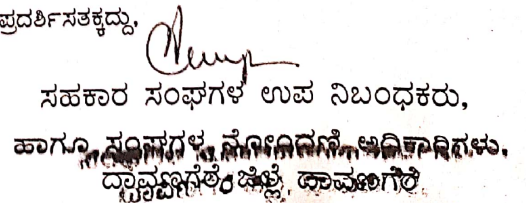 ಪ್ರದರ್ಶಿಸತಕ್ಕದ್ದು,
ಸಹಕಾರ ಸಂಘಗಳ ಉಪ ನಿಬಂಧಕರು,
ಹಾಗೂ ಸಂಘಗಳ ನೋಂದಣಿ ಅಧಿಕಾರಿಗಳು,
ದಾವಣಗೆರೆ ಜಿಲ್ಲೆ, ದಾವಣಗೆರೆ